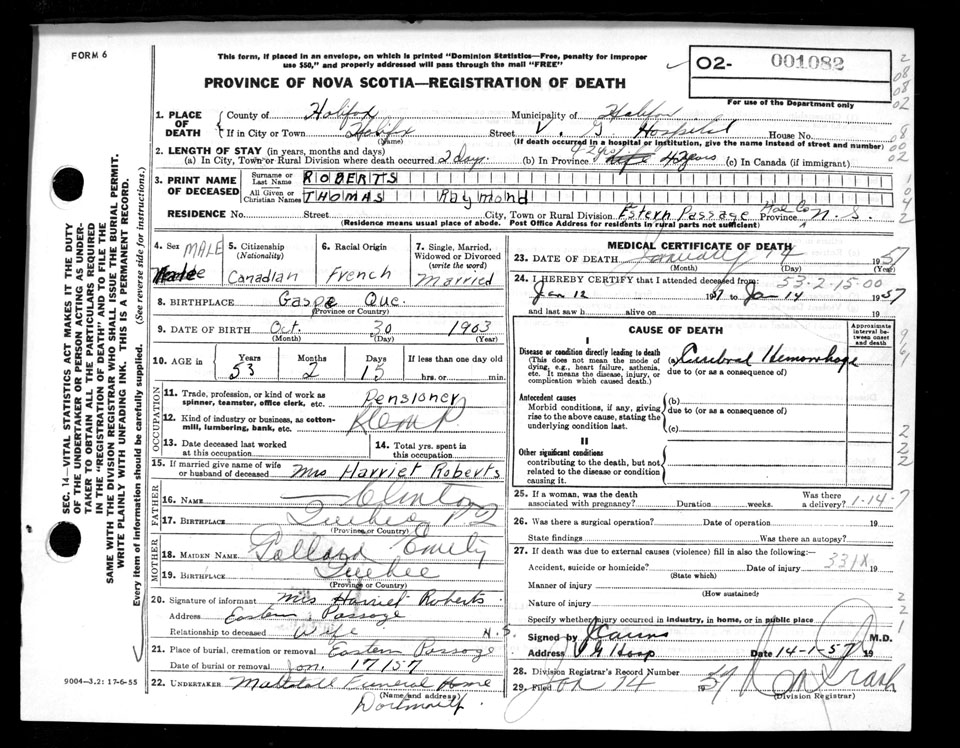 FORM 6
This form, if placed in an envelope, on which is printed "Dominion Statistics—Free, penalty for improper
use $50," and properly addressed will pass through the mail "FREE"
PROVINCE OF NOVA SCOTIA—REGISTRATION OF DEATH
O2- 001082
For use of the Department only
SEC. 14—VITAL STATISTICS ACT MAKES IT THE DUTY
OF THE UNDERTAKER OR PERSON ACTING AS UNDER-
TAKER TO OBTAIN ALL THE PARTICULARS REQUIRED
IN THE "REGISTRATION OF DEATH" AND TO FILE THE
SAME WITH THE DIVISION REGISTRAR WHO SHALL ISSUE THE BURIAL PERMIT.
WRITE PLAINLY WITH UNFADING INK. THIS IS A PERMANENT RECORD.
Every item of information should be carefully supplied. (See reverse side for instructions.)
1. PLACE OF DEATH County of Halifax Municipality of Halifax
If in City or Town Halifx Street V. G. Hospital House No.
(Name) (If death occurred in a hospital or institution, give the name instead of street and number)
2. LENGTH OF STAY (in years, months and days)
(a) In City, Town or Rural Division where death occurred 2 days (b) In Province life 42 years (c) In Canada (if immigrant)
3. PRINT NAME OF DECEASED Surname or Last Name ROBERTS
All Given or Christian Names THOMAS Raymond
RESIDENCE No. Street City, Town or Rural Division Estern Passage Hal Co Province N. S.
(Residence means usual place of abode. Post Office Address for residents in rural parts not sufficient)
4. Sex MALE
5. Citizenship (Nationality) Canadian
6. Racial Origin French
7. Single, Married, Widowed or Divorced (write the word) Married
8. BIRTHPLACE Gaspe Que.
(Province or Country)
9. DATE OF BIRTH Oct. 30 1903
(Month) (Day) (Year)
10. AGE in Years Months Days If less than one day old
53 2 15 hrs. or min.
OCCUPATION
11. Trade, profession, or kind of work as spinner, teamster, office clerk, etc. Pensioner
12. Kind of industry or business, as cotton-mill, lumbering, bank, etc.
13. Date deceased last worked at this occupation
14. Total yrs. spent in this occupation
15. If married give name of wife or husband of deceased Mrs Harriet Roberts
FATHER
16. NAME Clinton
17. BIRTHPLACE Quebec P Q
(Province or Country)
MOTHER
18. MAIDEN NAME Emily
19. BIRTHPLACE Quebec
(Province or Country)
20. Signature of informant Mrs Harriet Roberts
Address Eastern Passage
Relationship to deceased Wife N. S.
21. Place of burial, cremation or removal Eastern Passage
Date of burial or removal Jan. 17/57
22. UNDERTAKER Mattatall Funeral Home
(Name and address)
9004—3,2: 17-6-55
MEDICAL CERTIFICATE OF DEATH
23. DATE OF DEATH January 14 1957
(Month) (Day)
24. I HEREBY CERTIFY that I attended deceased from: 53-2-15-00
Jan 12 1957 to Jan 14 1957
and last saw h alive on 19
CAUSE OF DEATH
Approximate interval between onset and death
I
Disease or condition directly leading to death (a) Cerebral Hemorrhage
(This does not mean the mode of dying, e.g., heart failure, asthenia, etc. It means the disease, injury, or complication which caused death.) due to (or as a consequence of)
Antecedent causes (b)
Morbid conditions, if any, giving rise to the above cause, stating the underlying condition last. due to (or as a consequence of)
(c)
II
Other significant conditions
contributing to the death, but not related to the disease or condition causing it.
25. If a woman, was the death associated with pregnancy? Duration weeks. Was there a delivery? 1-14-7
26. Was there a surgical operation? Date of operation 19
State findings Was there an autopsy?
27. If death was due to external causes (violence) fill in also the following:
Accident, suicide or homicide? Date of injury 331X 19
(State which)
Manner of injury
(How sustained)
Nature of injury
Specify whether injury occurred in industry, in home, or in public place
Signed by M.D.
Address V G Hosp Date 14-1-57 19
28. Division Registrar's Record Number
29. Filed Jan 14 1957
(Division Registrar)